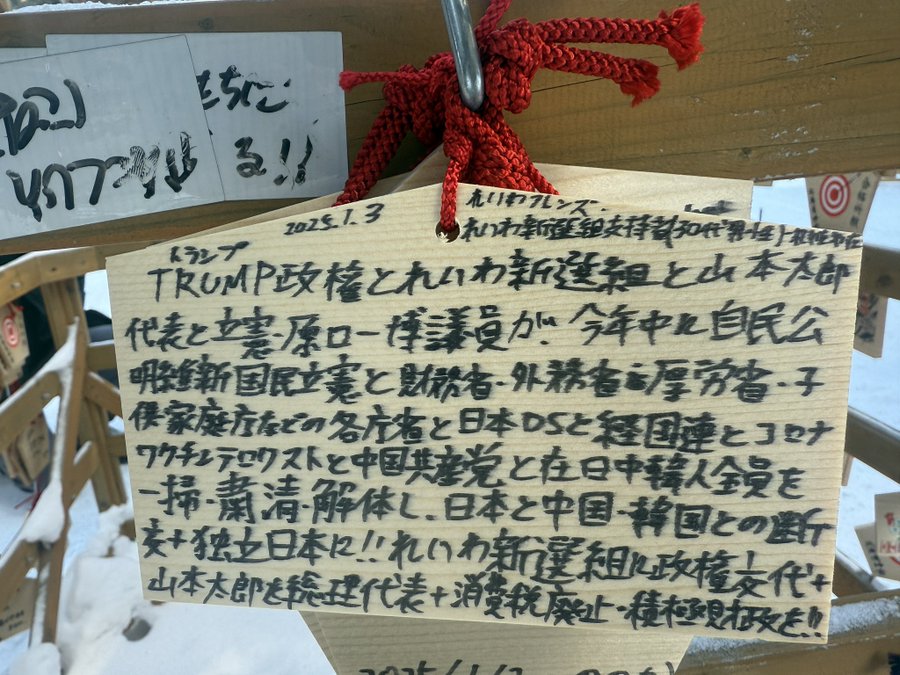 もちに
る!!
2025.1.3
れいわフレンズ
れいわ新選組支持者(30代男性)
トランプ
TRUMP政権とれいわ新選組と山本太郎
代表と立憲・原口一博議員が、今年中に自民公
明維新国民立憲と財務省・外務省・厚労省・子
供家庭庁などの各庁省と日本DSと経団連とコロナ
ワクチンテロリストと中国共産党と在日中韓人全員を
一掃・粛清・解体し、日本と中国・韓国との断
交+独立日本に!!れいわ新選組に政権交代+
山本太郎を総理代表+消費税廃止・積極財政を!!